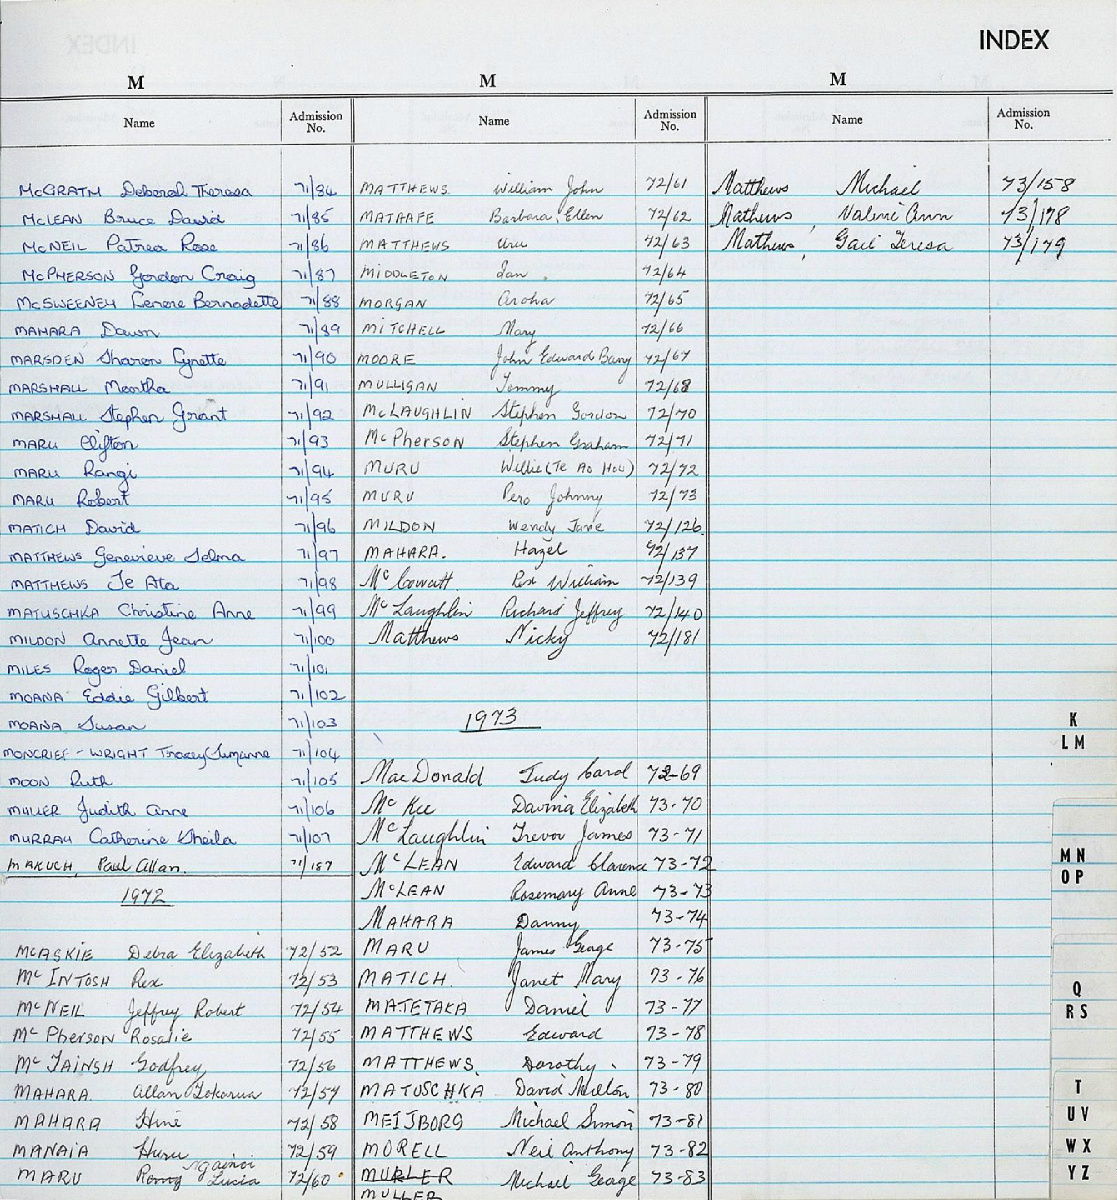 INDEX
M
Name
Admission No.
McGRATH Deborah Theresa 71/84
McLEAN Bruce David 71/85
McNEIL Patrea Rose 71/86
McPHERSON Gordon Craig 71/87
McSWEENEY Lenore Bernadette 71/88
MAHARA Dawn 71/89
MARSDEN Sharon Lynette 71/90
MARSHALL Martha 71/91
MARSHALL Stephen Grant 71/92
MARU Clifton 71/93
MARU Rangi 71/94
MARU Robert 71/95
MATICH David 71/96
MATTHEWS Genevieve Selma 71/97
MATTHEWS Te Ata 71/98
MATUSCHKA Christine Anne 71/99
MILDON Annette Jean 71/100
MILES Roger Daniel 71/101
MOANA Eddie Gilbert 71/102
MOANA Susan 71/103
MONCRIEF-WRIGHT Tracey Suzanne 71/104
MOON Ruth 71/105
MULLER Judith Anne 71/106
MURRAY Catherine Sheila 71/107
MAKUCH, Paul Allan. 71/187
1972
McASKIE Debra Elizabeth 72/52
Mc INTOSH Rex 72/53
Mc NEIL Jeffrey Robert 72/54
Mc Pherson Rosalie 72/55
Mc TAINSH Godfrey 72/56
MAHARA. Allan 72/57
MAHARA Hine 72/58
MANAIA Huru 72/59
MARU Lucia 72/60
M
Name
Admission No.
MATTHEWS William John 72/61
MATARFE Barbara Ellen 72/62
MATTHEWS Uru 72/63
MIDDLETON Ian 72/64
MORGAN Aroha 72/65
MITCHELL Mary 72/66
MOORE John Edward Barry 72/67
MULLIGAN Tommy 72/68
McLAUGHLIN Stephen Gordon 72/70
McPherson Stephen Graham 72/71
MURU Willie (Te Ao Hou) 72/72
MURU Pero Johnny 72/73
MILDON Wendy Jane 72/126
MAHARA. Hazel 72/137
Mc Cowatt Rex William 72/139
Mc Laughlin Richard Jeffrey 72/140
Matthews Nicky 72/181
1973
MacDonald Judy Carol 72-69
Mc Kee Davina Elizabeth 73-70
Mc Laughlin Trevor James 73-71
McLEAN Edward Clarence 73-72
McLEAN Rosemary Anne 73-73
MAHARA Danny 73-74
MARU James George 73-75
MATICH. Janet Mary 73-76
MATETAKA Daniel 73-77
MATTHEWS Edward 73-78
MATTHEWS. Dorothy 73-79
MATUSCHKA David Milton 73-80
MEIJBORG Michael Simon 73-81
MORELL Neil Anthony 73-82
MURLER Michael George 73-83
MULLER
M
Name
Admission No.
Matthews Michael 73/158
Mathews Valerie Ann 73/178
Mathews Gail Teresa 73/179
K
L M
M N
O P
Q
R S
T
U V
W X
Y Z